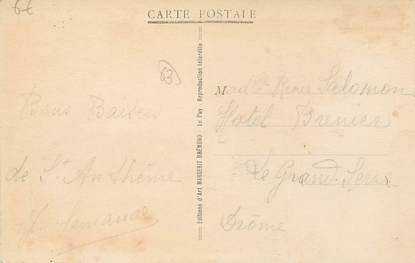 6€
CARTE POSTALE
63
Bons Baisers
de St Anthème
Editions d'Art MARGERIT-BRÉMOND - Le Puy - Reproduction interdite
Salomon
Hotel
Le Grand Serre
Drôme